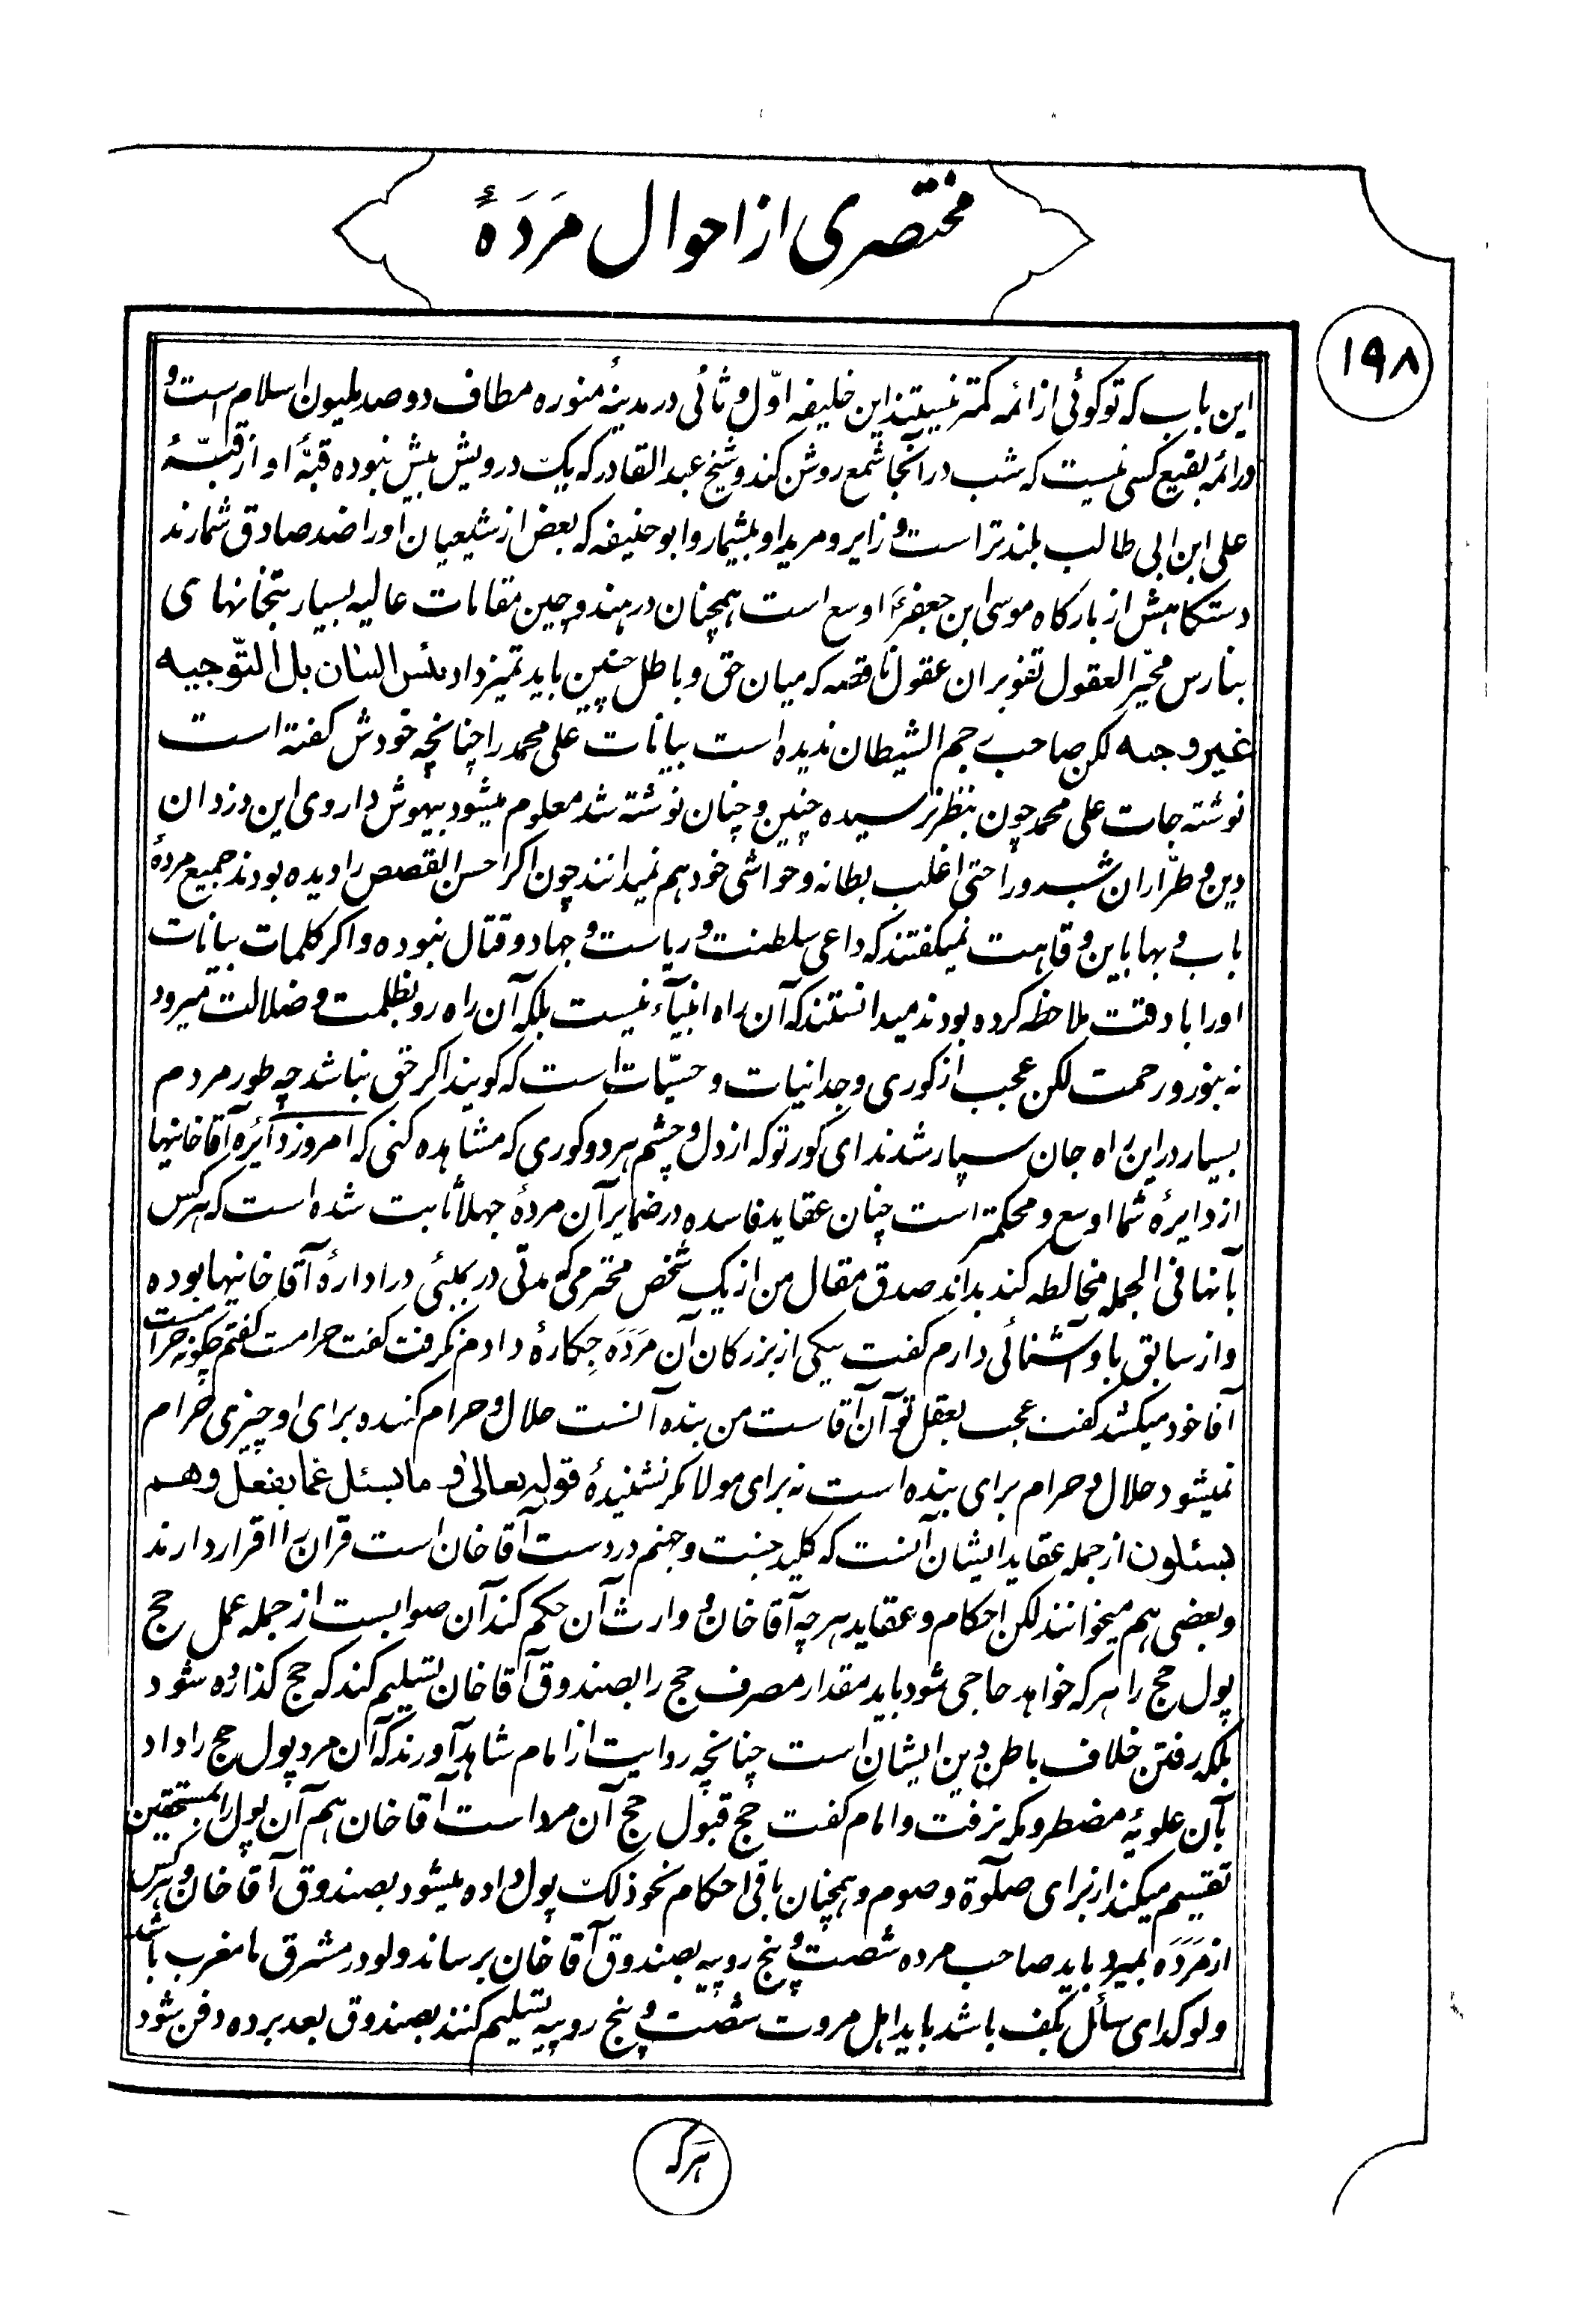 مختصری از احوال مَرَدَهٔ
۱۹۸
این باب که تو کوئی از ائمه کمتر نیستند این خلیفه اوّل و ثانی در مدینهٔ منوره مطاف دو صد ملیون اسلام است و
در ائمه بقیع کسی نیست که شب در آنجا شمع روشن کند و شیخ عبدالقادر که یک درویش بیش نبوده قبّهٔ او از قبّهٔ
علی ابن ابی طالب بلندتر است و زایر و مرید او بیشمار و ابو حنیفه که بعض از شیعیان او را ضد صادق شمارند
دستکاهش از بارکاه موسی ابن جعفر اوسع است همچنان در هند و چین مقامات عالیه بسیار بتخانهای
بنارس محیّر العقول تفو بران عقول ناقصه که میان حق و باطل چنین باید تمیز داد بئس البنان بل التّوجیه
غیر وجیه لکن صاحب رجم الشیطان ندیده است بیانات علی محمد را چنانچه خودش کفته است
نوشته جات علی محمد چون بنظر نرسیده چنین و چنان نوشته شد معلوم میشود بیهوش داروی این دزدان
دین و طرّاران شب رو را حتی اغلب بطانه و حواشی خود هم نمیدانند چون اکر احسن القصص را دیده بودند جمیع مردهٔ
باب و بها باین وقاهت نمیکفتند که داعی سلطنت و ریاست و جهاد و قتال نبوده و اکر کلمات بیانات
او را با دقت ملاحظه کرده بودند میدانستند که آن راه انبیآء نیست بلکه آن راه رو بظلمت و ضلالت میرود
نه بنور و رحمت لکن عجب از کوری وجدانیات و حسیّات است که کویند اکر حق نباشد چه طور مردم
بسیار در این راه جان سپار شدند ای کور تو که از دل و چشم هر دو کوری که مشاهده کنی که امروز دآئره آقاخانیها
از دایرهٔ شما اوسع و محکمتر است چنان عقاید فاسده در ضمایر آن مردهٔ جهلا ثابت شده است که هر کس
بآنها فی الجمله مخالطه کند بداند صدق مقال من از یک شخص محترمی که مدتی در بمبئی در ادارهٔ آقا خانیها بوده
و از سابق با و آشنائی دارم کفت بیکی از بزرکان آن مَرَدَه جِکارهٔ دادم نکرفت کفت حرامست کفتم چکونه حرامست
آقا خود میکشد کفت عجب بعقل تو آن آقاست من بنده آنست حلال و حرام کننده برای او چیزی حرام
نمیشود حلال و حرام برای بنده است نه برای مولا مکر نشنیدهٔ قوله تعالی و ما یسئل عمّا یفعل و هم
یسئلون از جمله عقاید ایشان آنست که کلید جنت و جهنم در دست آقا خان است قران را اقرار دارند
و بعضی هم میخوانند لکن احکام و عقاید هر چه آقا خان و وارث آن حکم کند آن صوابست از جمله عمل حج
پول حج را هر که خواهد حاجی شود باید مقدار مصرف حج را بصندوق آقا خان تسلیم کند که حج کذارده شود
بلکه رفتن خلاف باطن دین ایشان است چنانچه روایت از امام شاهد آورند که آن مرد پول حج را داد
بآن علویهٔ مضطر و مکه نرفت و امام کفت حج قبول حج آن مرد است آقا خان هم آن پول را بمستحقین
تقسیم میکند از برای صلوة و صوم و همچنان باقی احکام نحو ذلک پول داده میشود بصندوق آقا خان و هر کس
از مَرَدَه بمیرد باید صاحب مرده شصت و پنج روپیه بصندوق آقا خان برساند ولو در مشرق تا مغرب باشد
ولو کدای سائل بکف باشد باید اهل مروت شصت و پنج روپیه تسلیم کنند بصندوق بعد برده دفن شود
هرکه